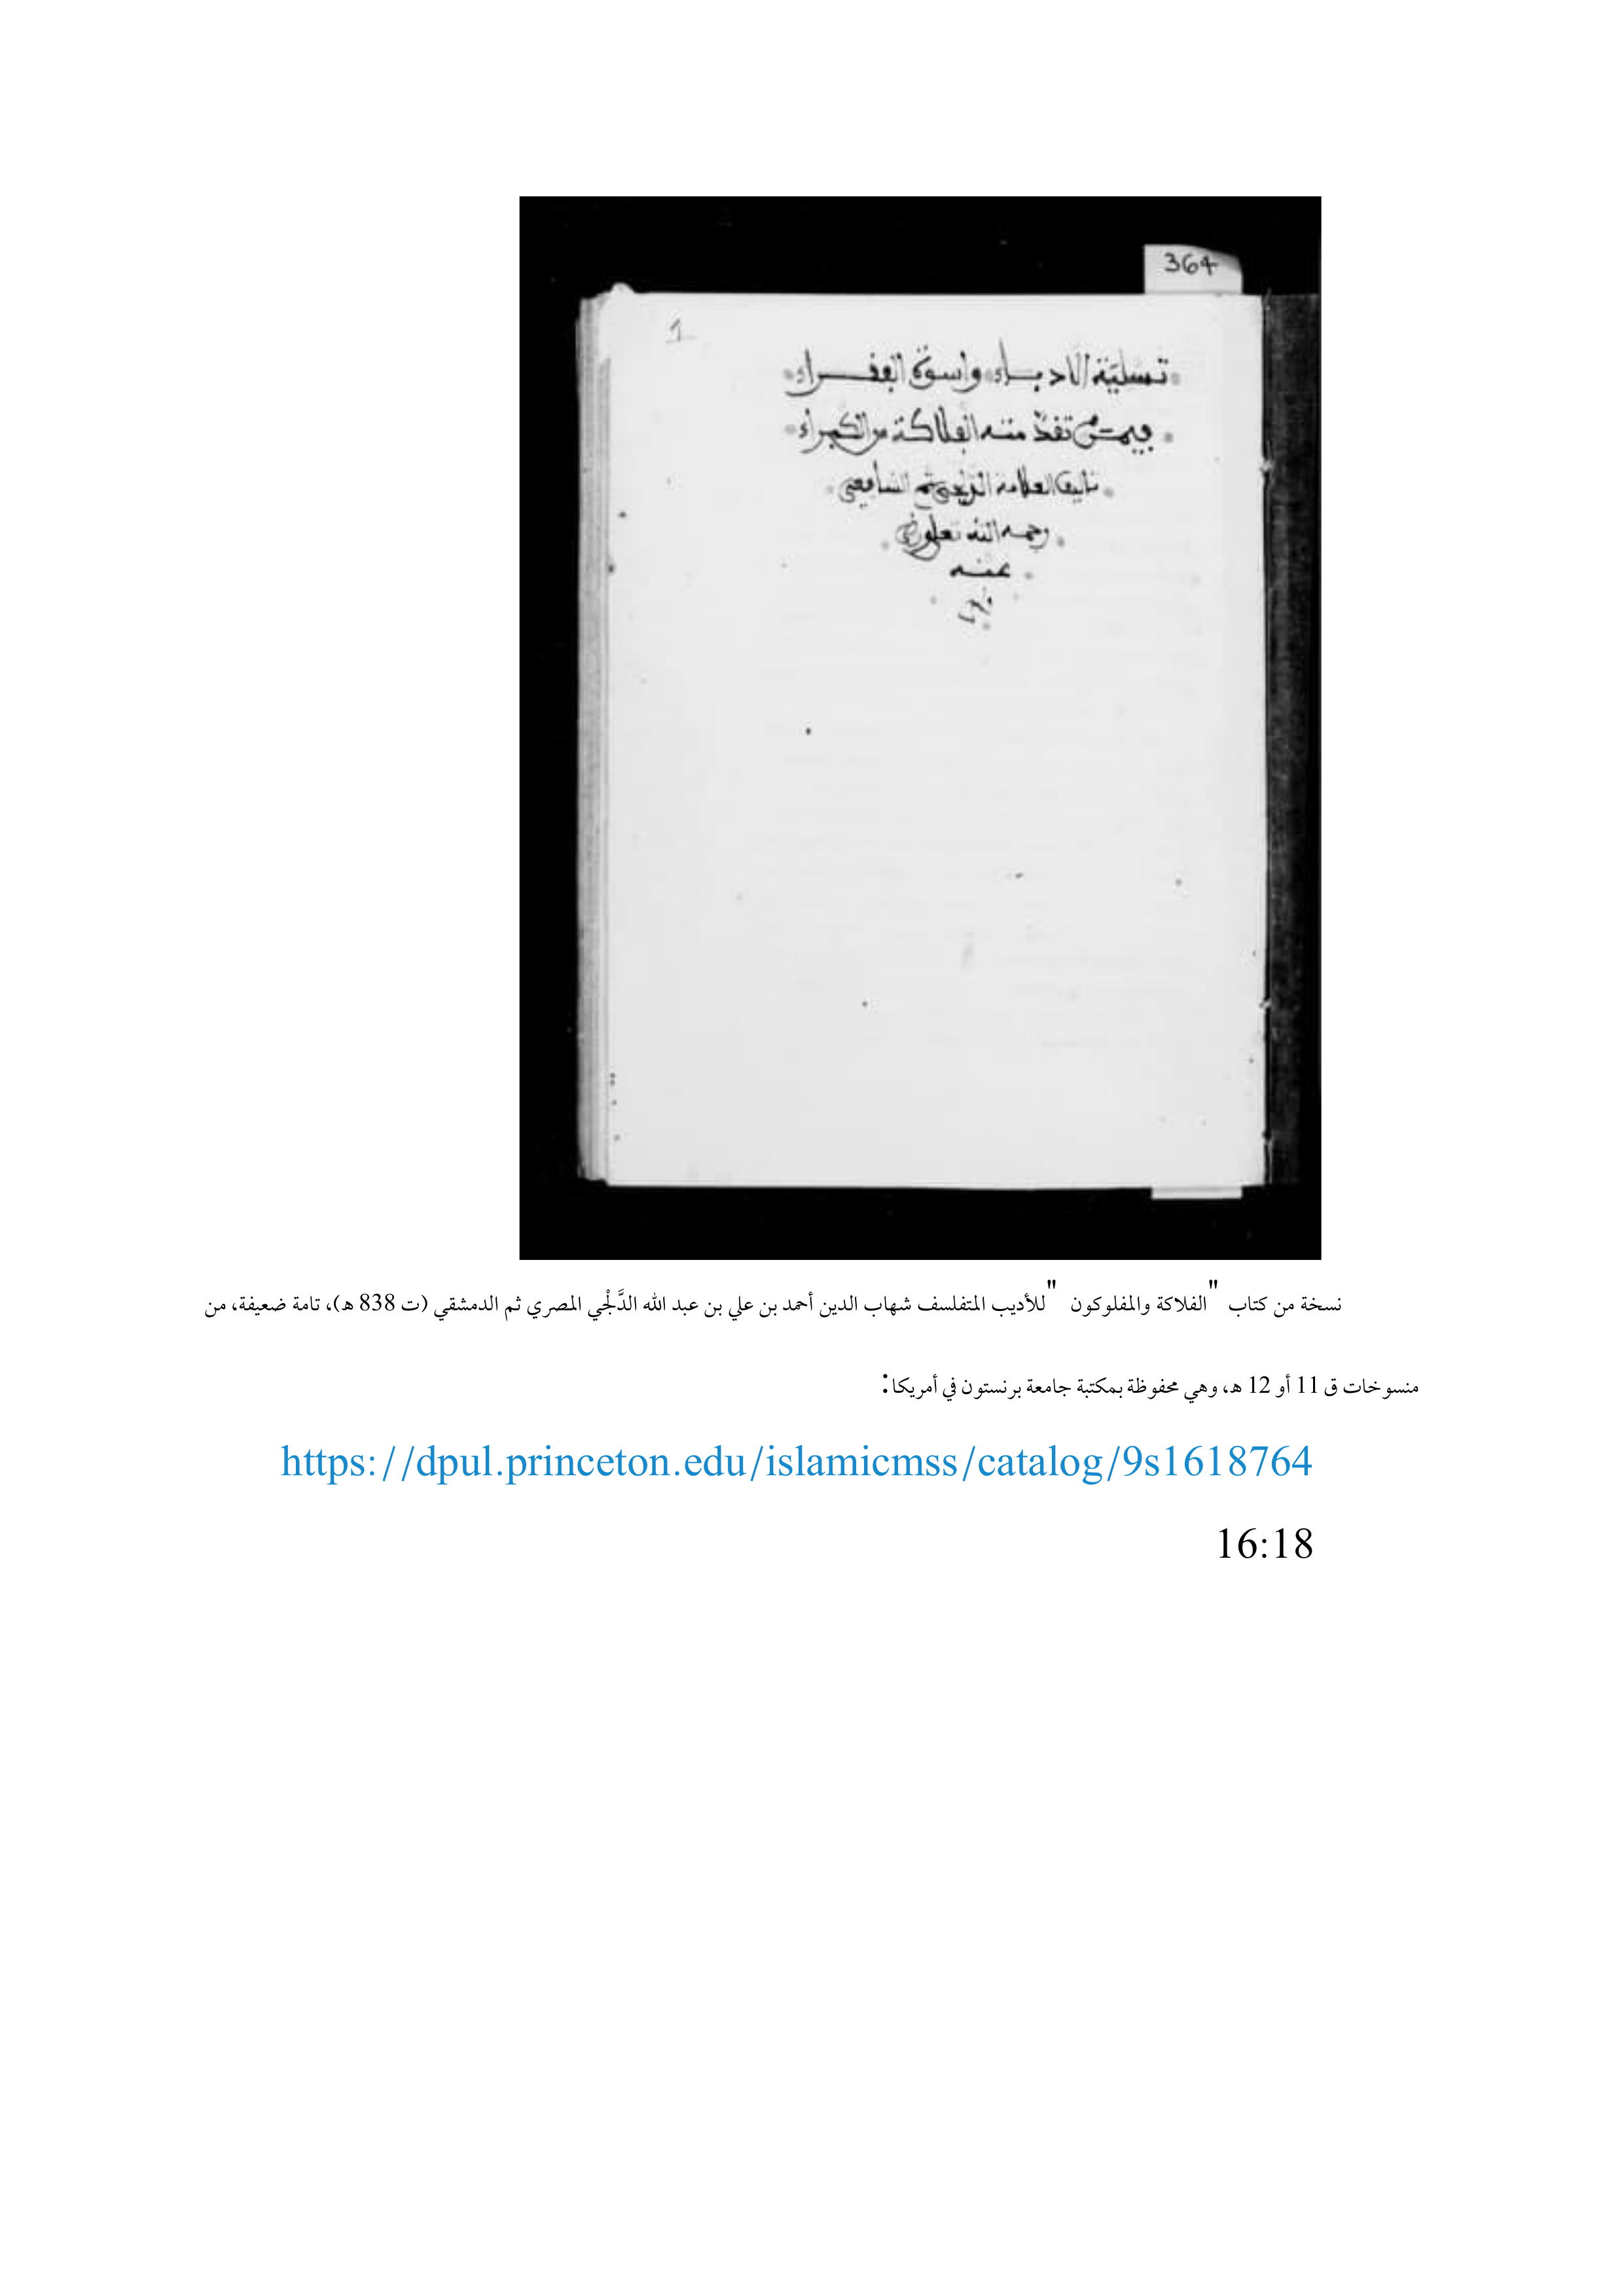 364
1
تسلية الادباء واسوة الفقراء
فيمن تقدمته الفلاكة من الكبراء
تاليف العلامة الدلجي ثم الشافعي
رحمه الله تعلى ورضي
عنه
نسخة من كتاب "الفلاكة والمفلوكون "للأديب المتفلسف شهاب الدين أحمد بن علي بن عبد الله الدَّلْجي المصري ثم الدمشقي (ت 838 هـ)، تامة ضعيفة، من
منسوخات ق 11 أو 12 هـ، وهي محفوظة بمكتبة جامعة برنستون في أمريكا:
https://dpul.princeton.edu/islamicmss/catalog/9s1618764
16:18